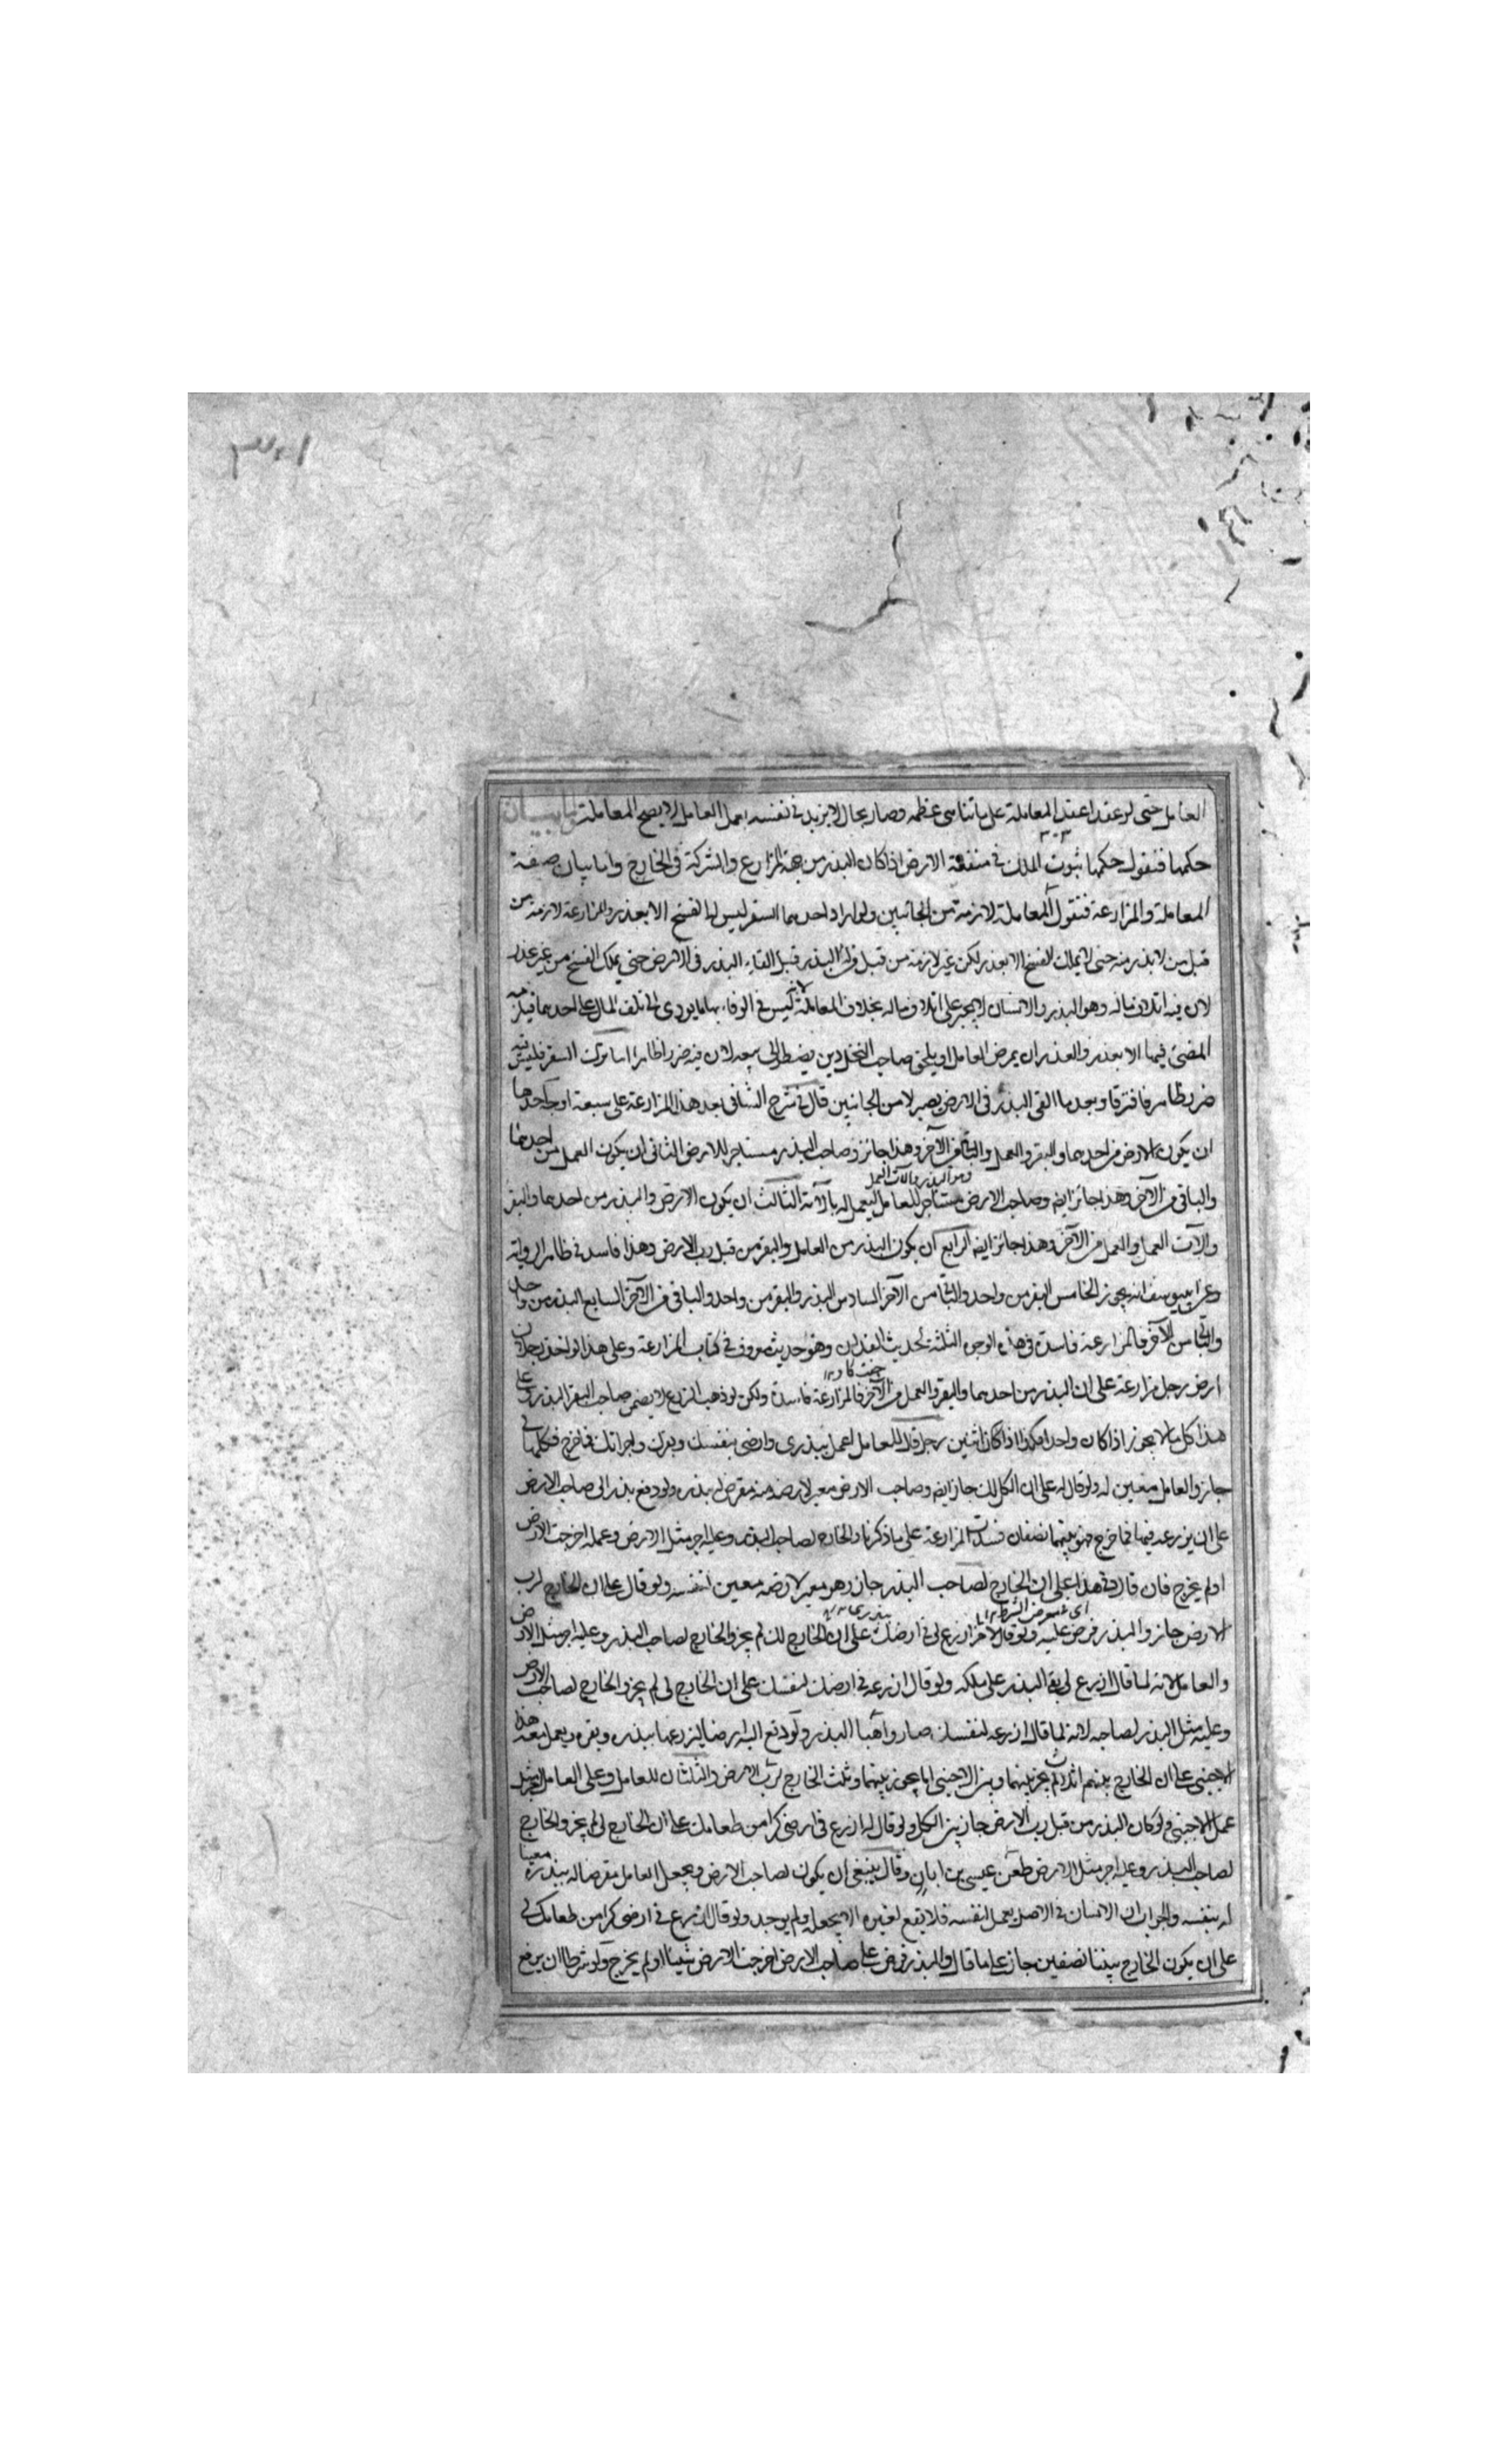 العامل حتى لو عقدا عقد المعاملة على ما تناهى عظمه وصار بحال لا يزيد في نفسه بعمل العامل لا يصح المعاملة واما بيان
حكمها فنقول حكمها ثبوت الملك في منفعة الارض اذا كان البذر من جهة المزارع والشركة في الخارج واما بيان صفة
المعاملة والمزارعة فنقول المعاملة لازمة من الجانبين ولو اراد احدهما السفر ليس له الفسخ الا بعذر والمزارعة لازمة من
قبل من لا بذر منه حتى لا يملك الفسخ الا بعذر لكن غير لازمة من قبل البذر قبل القاء البذر في الارض حتى يملك الفسخ من غير عذر
لان فيه اتلاف ماله وهو البذر والانسان لا يجبر على اتلاف ماله بخلاف المعاملة لانه ليس في الوفاء بها ما يودى الى تلف المال على احدهما فيلزمه
المضى فيها الا بعذر والعذر ان يمرض العامل او يلحق صاحب النخل دين يضطر الى بيعه لان فيه ضررا ظاهرا اما ترك السفر فليس فيه
ضرر ظاهر فافترقا وبعد ما القى البذر في الارض يصير لازما من الجانبين قال في شرح الشافى بعد هذا المزارعة على سبعة اوجه احدها
ان يكون الارض من احدهما والبقر والعمل والباقى من الآخر وهذا جائز وصاحب البذر مستاجر للارض الثانى ان يكون العمل من احدهما
وهو البذر والآت العمل
والباقى من الآخر وهذا جائز ايضا وصاحب الارض مستاجر للعامل ليعمل له بآلاته الثالث ان يكون الارض والبذر من احدهما والبقر
والآت العمل والعمل من الآخر وهذا جائز ايضا الرابع ان يكون البذر من العامل والبقر من قبل رب الارض وهذا فاسد في ظاهر الرواية
وعن ابي يوسف انه يجوز الخامس البقر من واحد والباقى من الآخر السادس البذر والبقر من واحد والباقى من الآخر السابع البذر من واحد
والباقى من الآخر فالمزارعة فاسدة في هذه الوجوه الثلثة لحديث الفدان وهو حديث معروف في كتاب المزارعة وعلى هذا لو اخذ رجلان
ارض رجل مزارعة على ان البذر من احدهما والبقر والعمل من الآخر فالمزارعة فاسدة ولكن لو ذهب الزرع لا يضمن صاحب البقر البذر وعلى
هذا كل ما لا يجوز اذا كان واحدا فكذا اذا كان اثنين رجل قال للعامل اعمل ببذرى وارضى بنفسك وبقرك واجرائك فما خرج فكلها لى
جاز والعامل معين له ولو قال له على ان الكل لك جاز ايضا وصاحب الارض معير لارضه منه مقرض له بذره ولو دفع بذرا الى صاحب الارض
على ان يزرعه فيها فما خرج فهو بينهما نصفان فسدت المزارعة على ما ذكرنا والخارج لصاحب البذر وعليه اجر مثل الارض وعمله اخرجت الارض
اولم يخرج فان قال في هذا على ان الخارج لصاحب البذر جاز وهو معير لارضه معين لنفسه ولو قال على ان الخارج لرب
الارض جاز والبذر قرض عليه ولو قال لآخر ازرع لى في ارضك على ان الخارج لك لم يجز والخارج لصاحب البذر وعليه اجر مثل الارض
والعامل لانه لما قال ازرع لى بقى البذر على ملكه ولو قال ازرعه في ارضك لنفسك على ان الخارج لى لم يجز والخارج لصاحب الارض
وعليه مثل البذر لصاحبه لانه لما قال ازرعه لنفسك صار واهبا البذر ولو دفع اليه ارضا ليزرعها ببذره وبقره ويعمل معه هذا
الاجنبى على ان الخارج بينهم اثلاثا لم يجز بينهما وبين الاجنبى انما يجوز بينهما وثلث الخارج لرب الارض والثلثان للعامل وعلى العامل اجر مثل
عمل الاجنبى ولو كان البذر من قبل رب الارض جاز بين الكل ولو قال له ازرع في ارضى كرا من طعامك على ان الخارج لى لم يجز والخارج
لصاحب البذر وعليه اجر مثل الارض طعن عيسى بن ابان وقال ينبغى ان يكون لصاحب الارض ويجعل العامل مقرضا له ببذره معينا
له بنفسه والجواب ان الانسان في الاصل يعمل لنفسه فلا يقع لغيره الا بجعله ولم يوجد ولو قال ازرع في ارضى كرا من طعامك لى
على ان يكون الخارج بيننا نصفين جاز على ما قال والبذر قرض على صاحب الارض اخرجت الارض شيئا اولم يخرج ولو شرطا ان يرفع